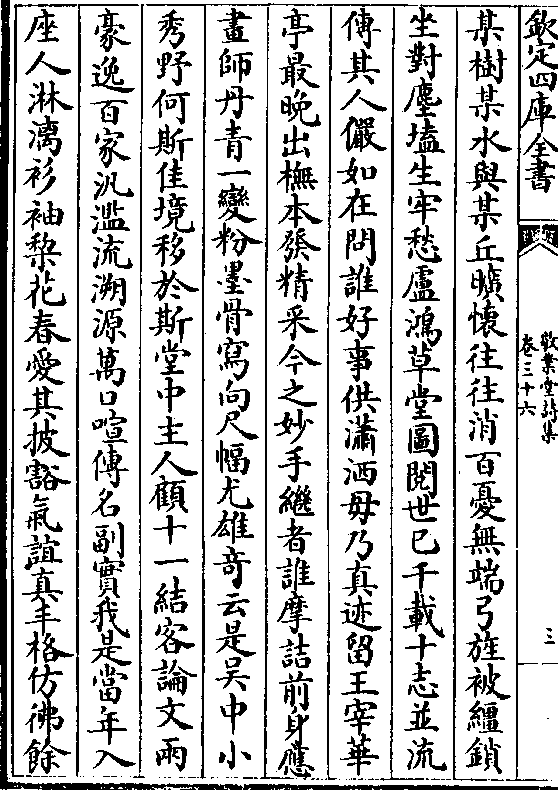 欽定四庫全書
敬業堂詩集
卷三十六
三
某樹某水與某丘曠懷往往消百憂無端弓旌被繮鎖
坐對塵壒生牢愁盧鴻草堂圖閱世已千載十志並流
傳其人儼如在問誰好事供瀟洒毋乃真迹留王宰華
亭最晚出橅本發精采今之妙手繼者誰摩詰前身應
畫師丹青一變粉墨骨寫向尺幅尤雄奇云是吳中小
秀野何斯佳境移於斯堂中主人顧十一結客論文兩
豪逸百家汎濫流溯源萬口喧傳名副實我是當年入
座人淋漓衫袖棃花春愛其披豁氣誼真丰格仿彿餘